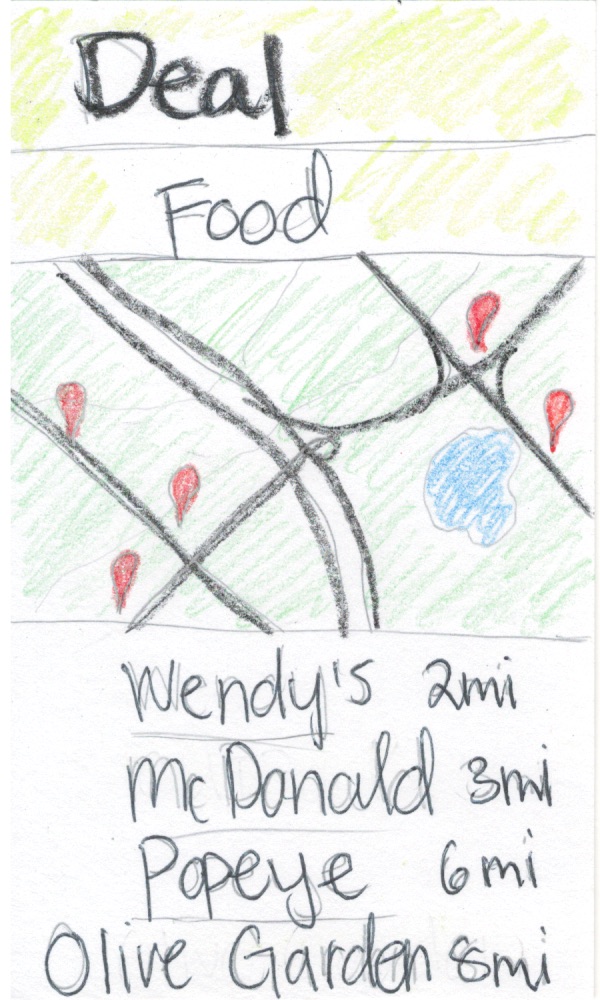 Deal
Food
Wendy's 2mi
McDonald 3mi
Popeye 6mi
Olive Garden 8mi